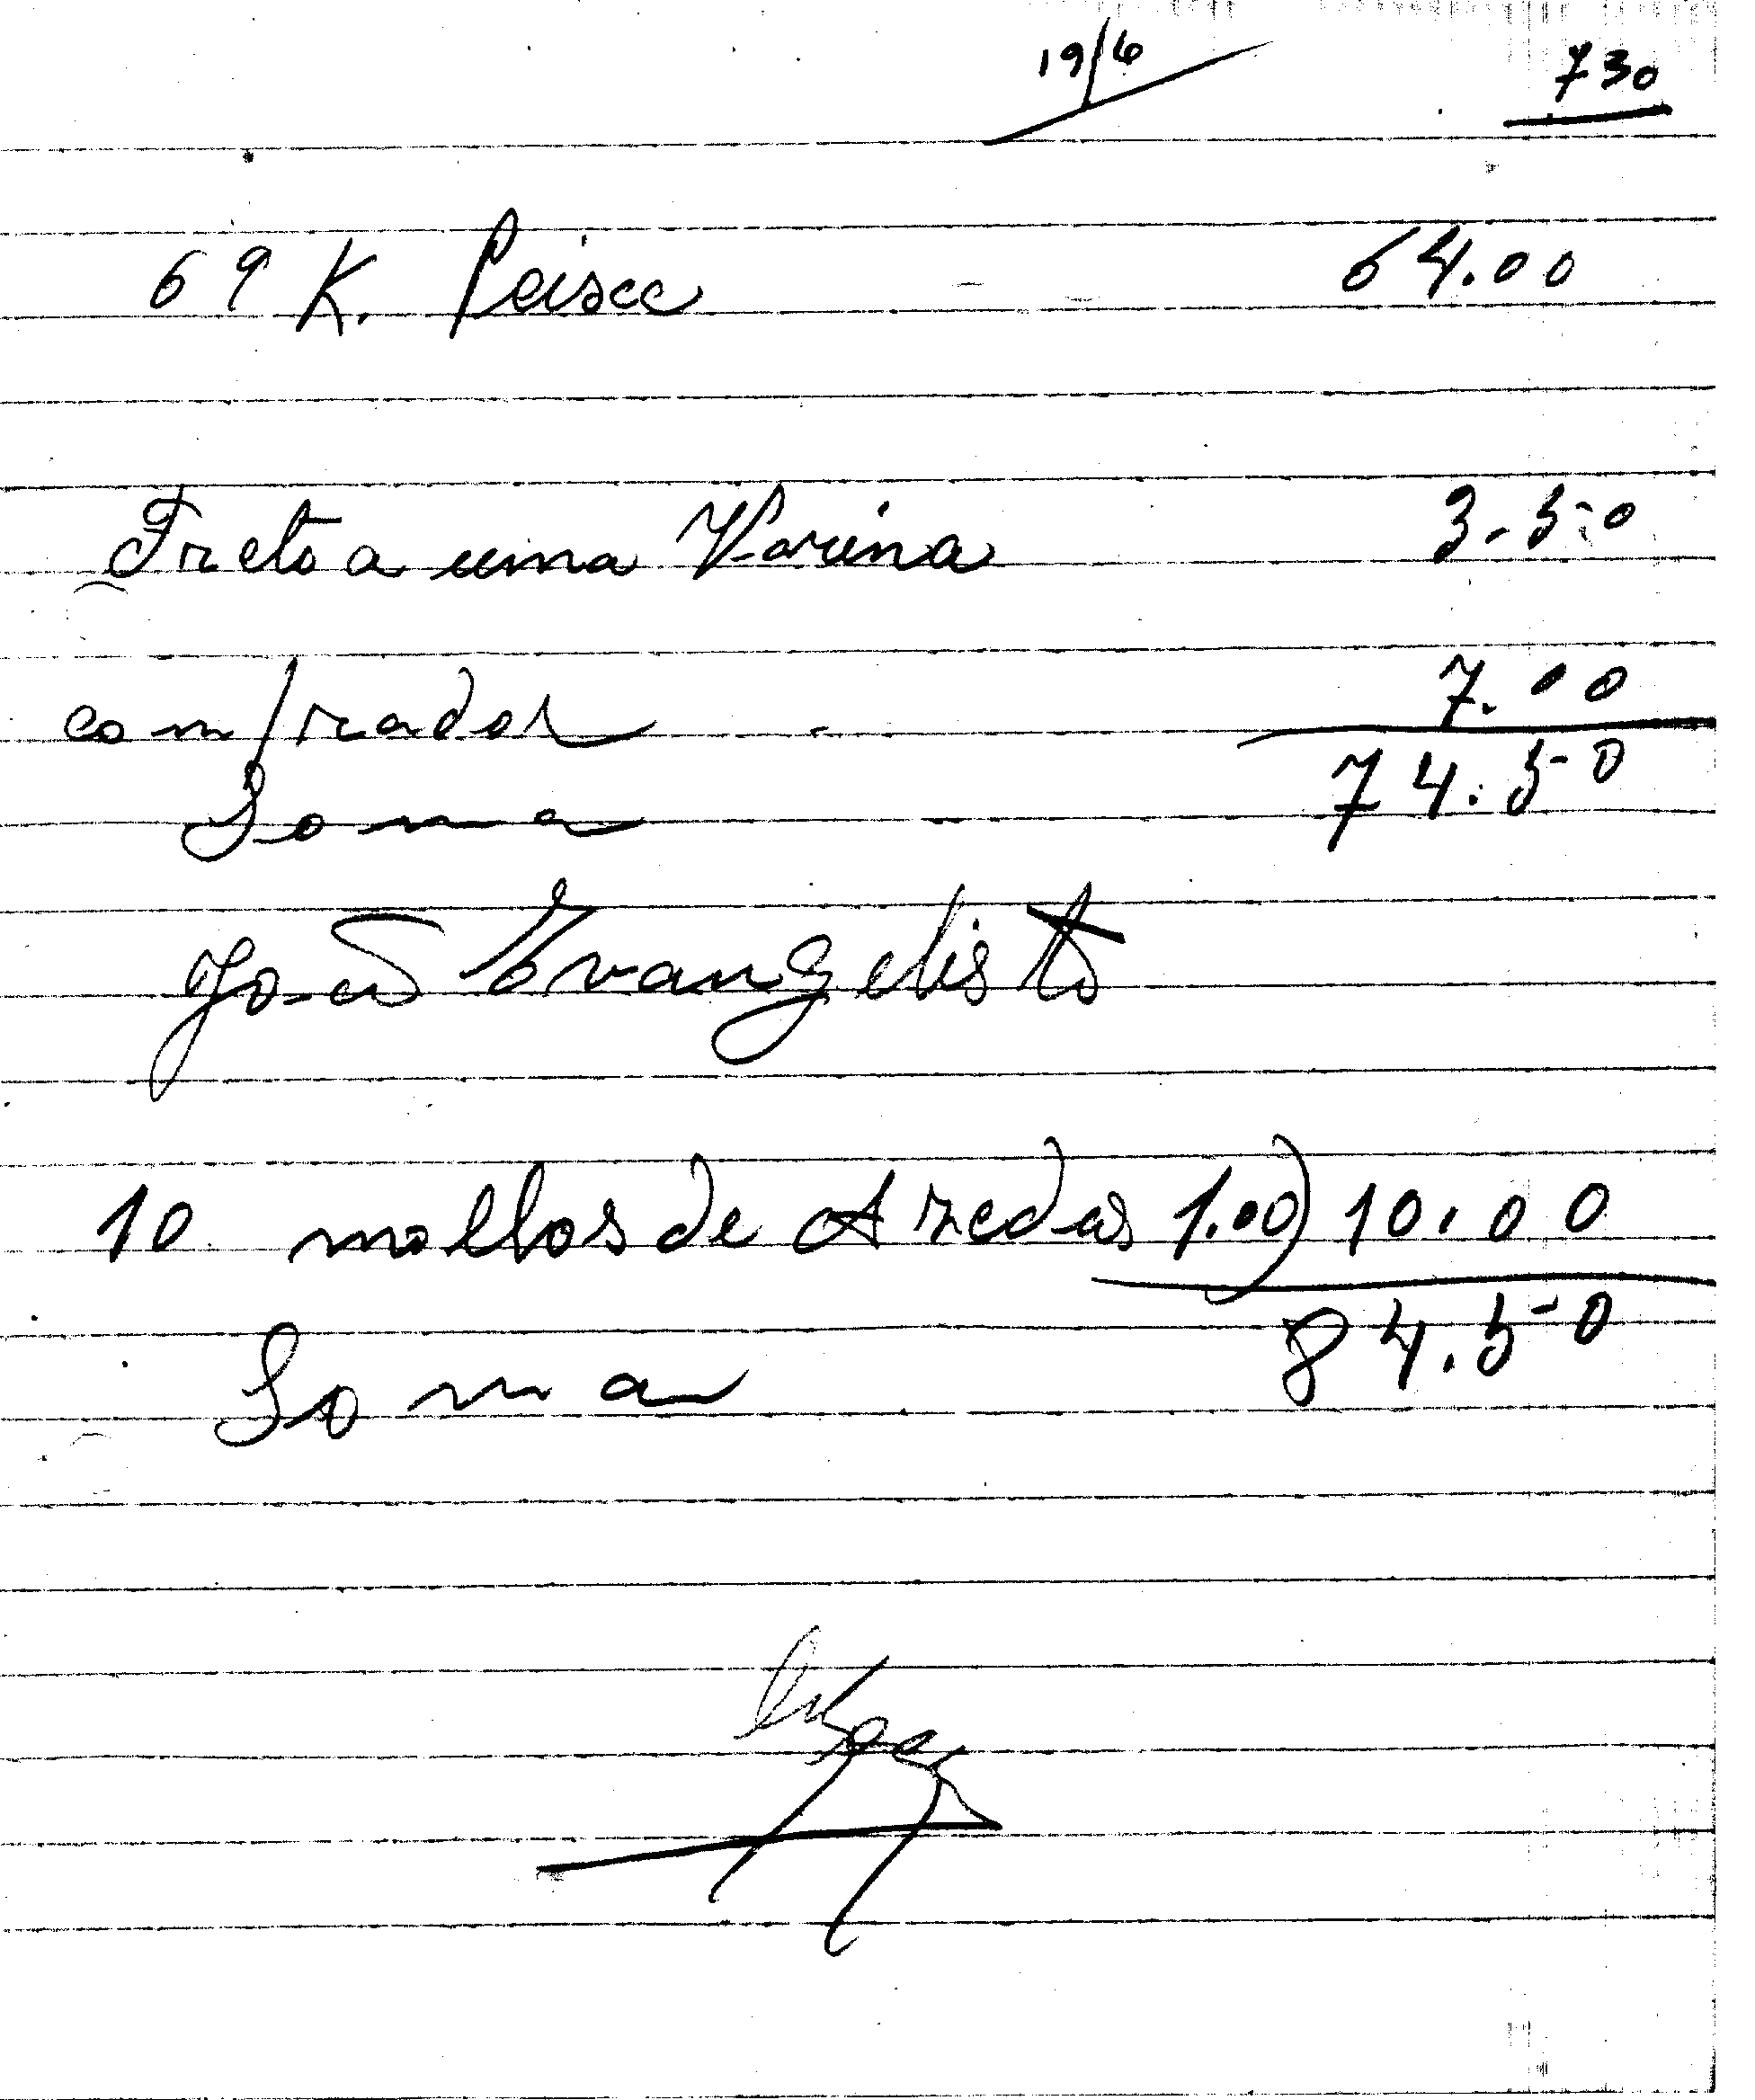 19/6 730
69 K. Peisce 64.00
Freto a uma Varina 3.50
comprador 7.00
Soma 74.50
João Evangelisto
10 molhos de Aredas 1.00) 10.00
Soma 84.50